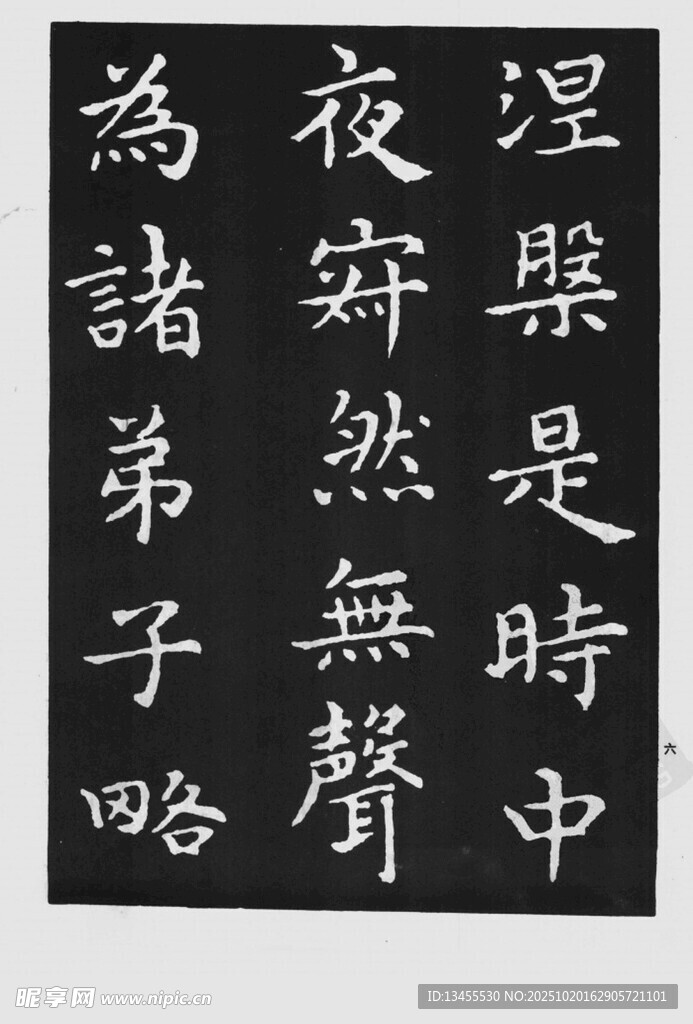 涅槃是時中
夜寂然無聲
為諸弟子略
六
昵享网 www.nipic.cn
ID:13455530 NO:20251020162905721101